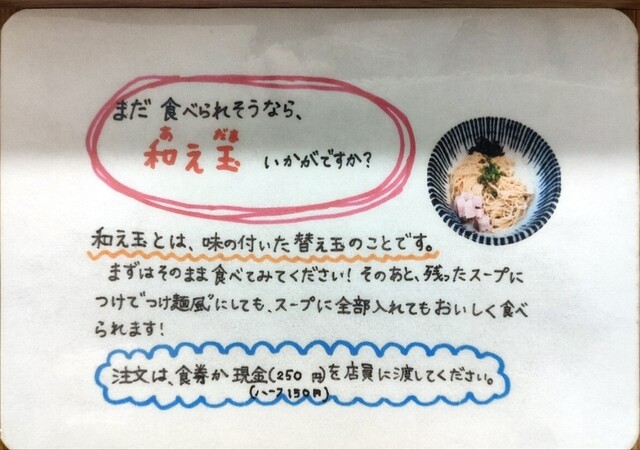 まだ 食べられそうなら、
あ だま
和え玉 いかがですか?
和え玉とは、味の付いた替え玉のことです。
まずはそのまま食べてみてください!そのあと、残ったスープに
つけて"つけ麺風"にしても、スープに全部入れてもおいしく食べ
られます!
注文は、食券か現金(250円)を店員に渡してください。
(ハーフ150円)